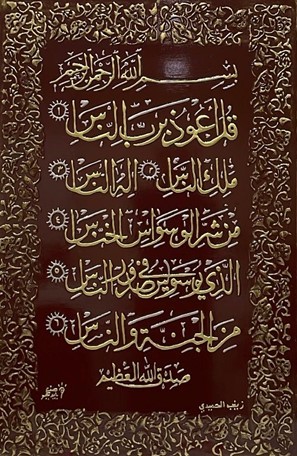 بسم الله الرحمن الرحيم
قل أعوذ برب الناس ١
ملك الناس ٢ إله الناس ٣
من شر الوسواس الخناس ٤
الذي يوسوس في صدور الناس ٥
من الجنة والناس ٦
صدق الله العظيم
زينب الحميدي